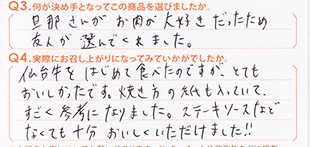 Q3.何が決め手となってこの商品を選びましたか。
旦那さんがお肉が大好きだったため
友人が選んでくれました。
Q4.実際にお召し上がりになってみていかがでしたか。
仙台牛をはじめて食べたのですが、とても
おいしかったです。焼き方の紙も入っていて、
すごく参考になりました。ステーキソースなど
なくても十分おいしくいただけました!!